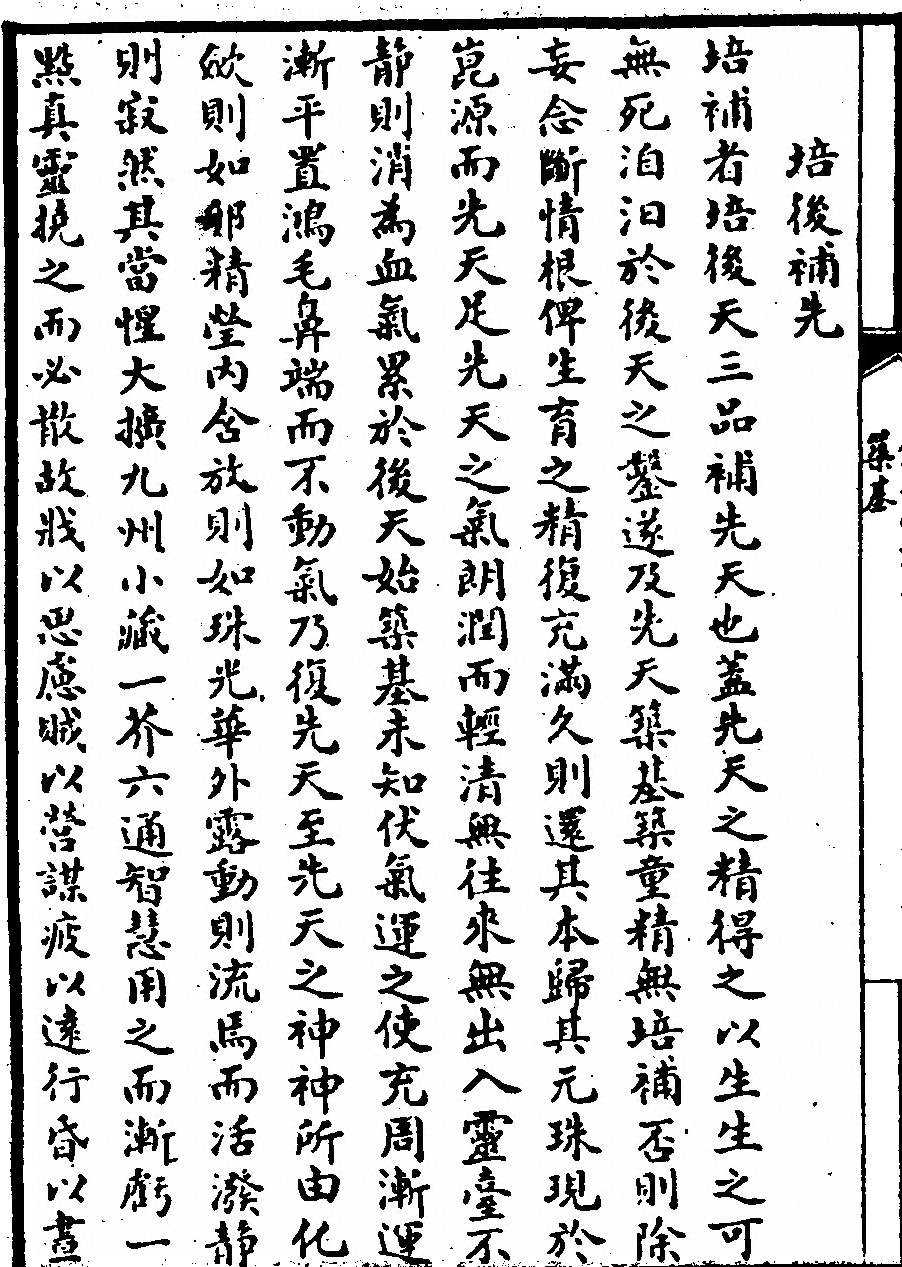 培後補先
培補者培後天三品補先天也蓋先天之精得之以生生之可
無死汩汩於後天之鑿遂及先天築基築童精無培補否則除
妄念斷情根俾生育之精復充滿久則還其本歸其元珠現於
崑源而先天足先天之氣朗潤而輕清無往來無出入靈臺不
静則消為血氣累於後天始築基未知伏氣運之使充周漸運
漸平置鴻毛鼻端而不動氣乃復先天至先天之神神所由化
斂則如邪精瑩内含放則如珠光華外露動則流焉而活潑静
則寂然其當惺大擴九州小藏一芥六通智慧用之而漸虧一
點真靈撓之而必散故戕以思慮賊以營謀疲以遠行昏以晝
築基